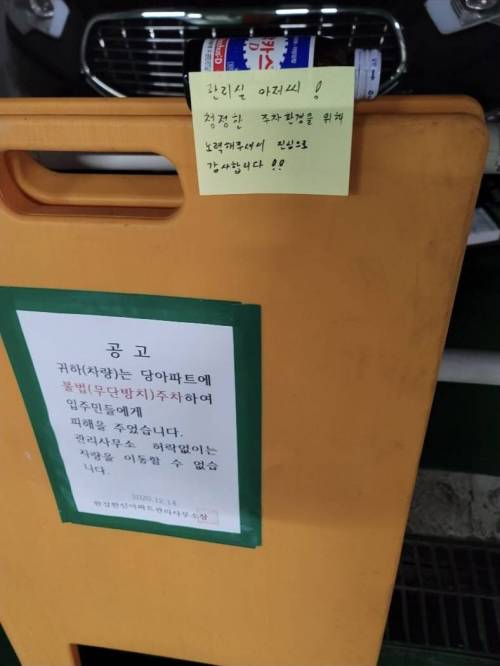 박카스
D
관리실 아저씨 !
청정한 주차환경을 위해
노력해주셔서 진심으로
감사합니다 !!
공 고
귀하(차량)는 당아파트에
불법(무단방치)주차하여
입주민들에게
피해를 주었습니다.
관리사무소 허락없이는
차량을 이동할 수 없습
니다.
2020.12.14.